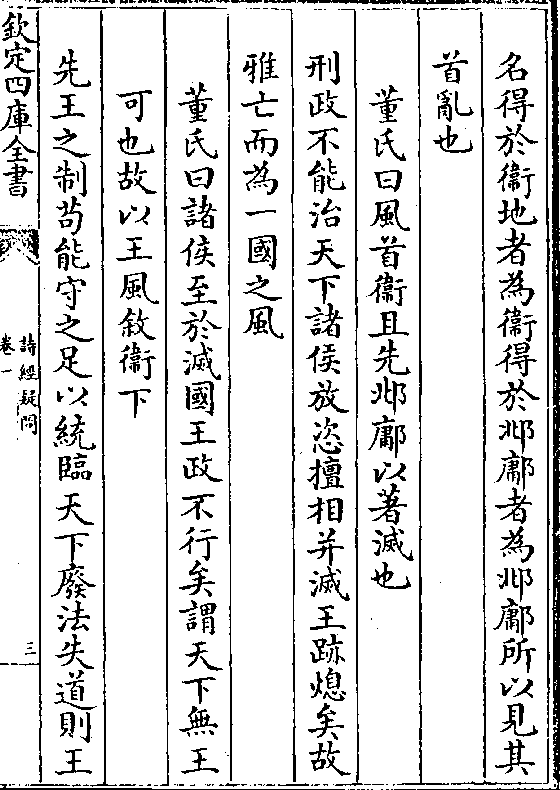 名得於衞地者為衞得於邶鄘者為邶鄘所以見其
首亂也
董氏曰風首衞且先邶鄘以著滅也
刑政不能治天下諸侯放恣擅相并滅王跡熄矣故
雅亡而為一國之風
董氏曰諸侯至於滅國王政不行矣謂天下無王
可也故以王風敘衞下
先王之制苟能守之足以統臨天下廢法失道則王
欽定四庫全書
詩經疑問
卷一
三